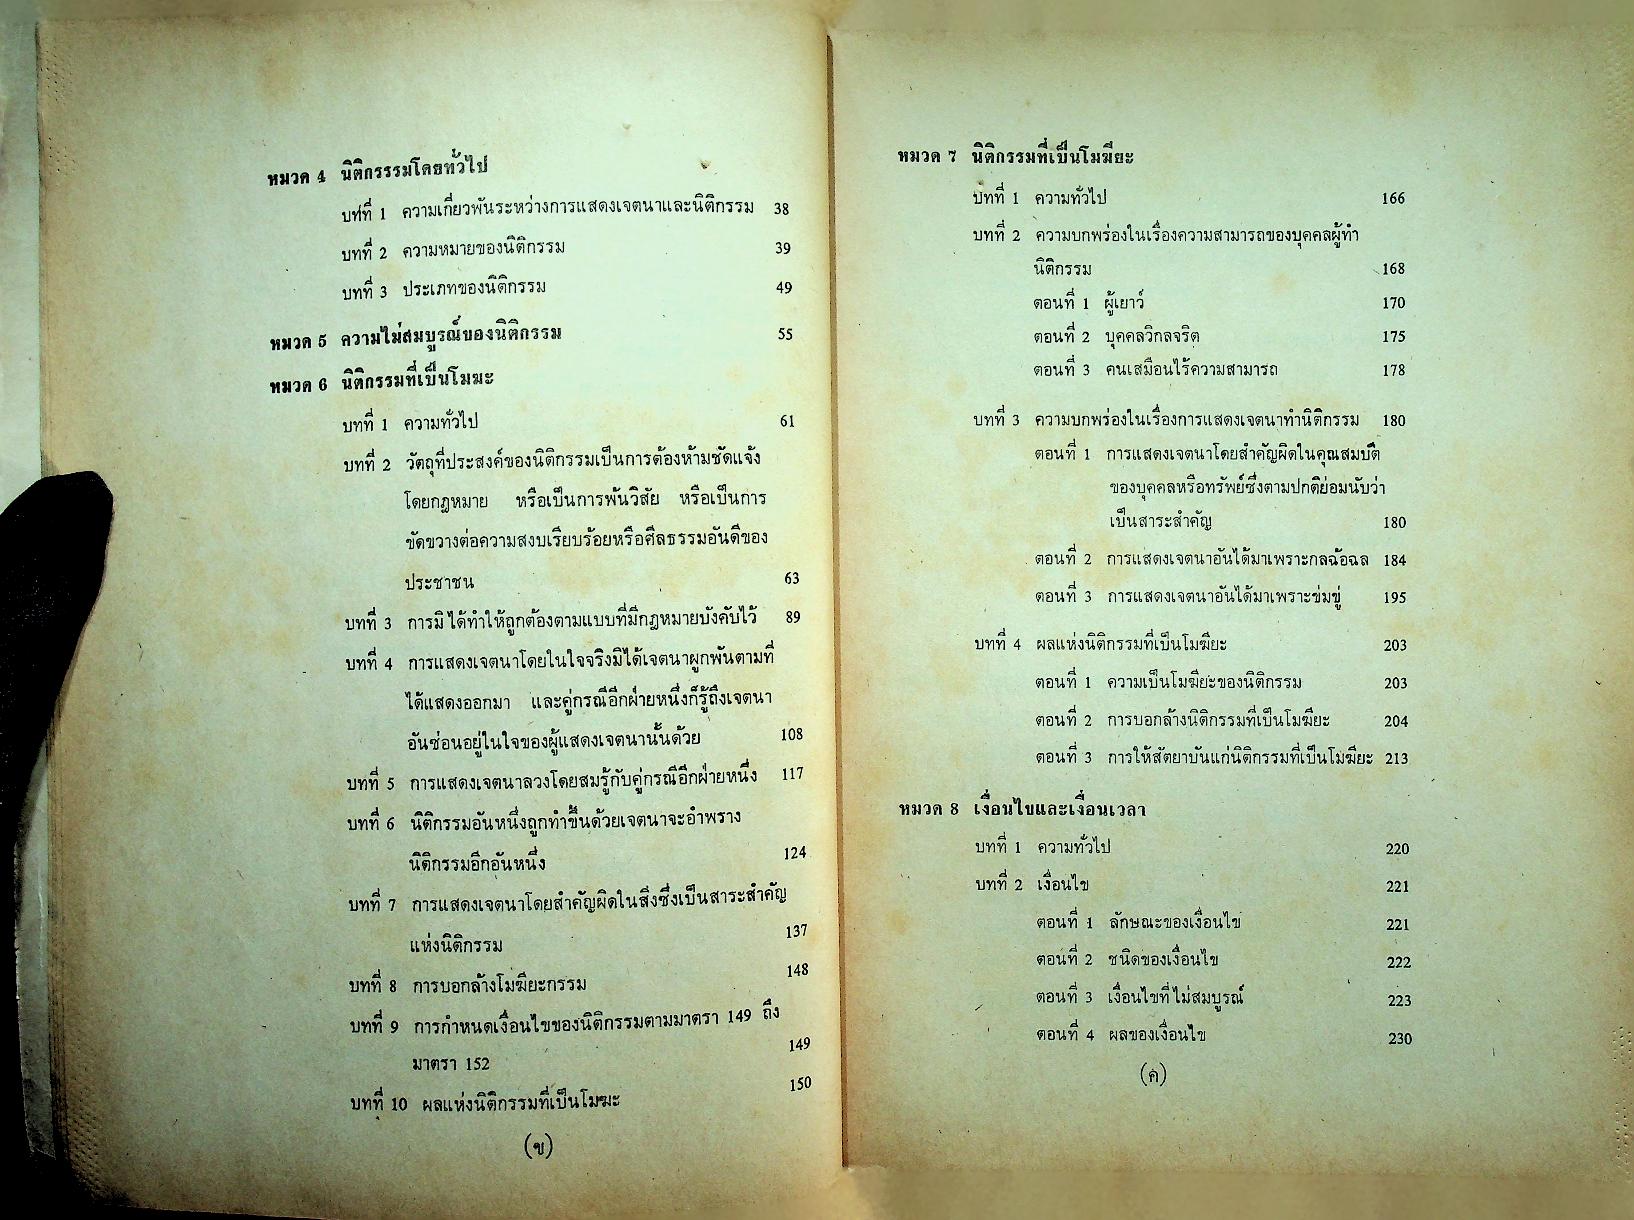 หมวด 4 นิติกรรมโดยทั่วไป
บทที่ 1 ความเกี่ยวพันระหว่างการแสดงเจตนาและนิติกรรม 38
บทที่ 2 ความหมายของนิติกรรม 39
บทที่ 3 ประเภทของนิติกรรม 49
หมวด 5 ความไม่สมบูรณ์ของนิติกรรม 55
หมวด 6 นิติกรรมที่เป็นโมฆะ
บทที่ 1 ความทั่วไป 61
บทที่ 2 วัตถุที่ประสงค์ของนิติกรรมเป็นการต้องห้ามชัดแจ้ง
โดยกฎหมาย หรือเป็นการพ้นวิสัย หรือเป็นการ
ขัดขวางต่อความสงบเรียบร้อยหรือศีลธรรมอันดีของ
ประชาชน 63
บทที่ 3 การมิได้ทำให้ถูกต้องตามแบบที่มีกฎหมายบังคับไว้ 89
บทที่ 4 การแสดงเจตนาโดยในใจจริงมิได้เจตนาผูกพันตามที่
ได้แสดงออกมา และคู่กรณีอีกฝ่ายหนึ่งก็รู้ถึงเจตนา
อันซ่อนอยู่ในใจของผู้แสดงเจตนานั้นด้วย 108
บทที่ 5 การแสดงเจตนาลวงโดยสมรู้กับคู่กรณีอีกฝ่ายหนึ่ง 117
บทที่ 6 นิติกรรมอันหนึ่งถูกทำขึ้นด้วยเจตนาจะอำพราง
นิติกรรมอีกอันหนึ่ง 124
บทที่ 7 การแสดงเจตนาโดยสำคัญผิดในสิ่งซึ่งเป็นสาระสำคัญ
แห่งนิติกรรม 137
บทที่ 8 การบอกล้างโมฆียะกรรม 148
บทที่ 9 การกำหนดเงื่อนไขของนิติกรรมตามมาตรา 149 ถึง
มาตรา 152 149
บทที่ 10 ผลแห่งนิติกรรมที่เป็นโมฆะ 150
(ข)
หมวด 7 นิติกรรมที่เป็นโมฆียะ
บทที่ 1 ความทั่วไป 166
บทที่ 2 ความบกพร่องในเรื่องความสามารถของบุคคลผู้ทำ
นิติกรรม 168
ตอนที่ 1 ผู้เยาว์ 170
ตอนที่ 2 บุคคลวิกลจริต 175
ตอนที่ 3 คนเสมือนไร้ความสามารถ 178
บทที่ 3 ความบกพร่องในเรื่องการแสดงเจตนาทำนิติกรรม 180
ตอนที่ 1 การแสดงเจตนาโดยสำคัญผิดในคุณสมบัติ
ของบุคคลหรือทรัพย์ซึ่งตามปกติย่อมนับว่า
เป็นสาระสำคัญ 180
ตอนที่ 2 การแสดงเจตนาอันได้มาเพราะกลฉ้อฉล 184
ตอนที่ 3 การแสดงเจตนาอันได้มาเพราะข่มขู่ 195
บทที่ 4 ผลแห่งนิติกรรมที่เป็นโมฆียะ 203
ตอนที่ 1 ความเป็นโมฆียะของนิติกรรม 203
ตอนที่ 2 การบอกล้างนิติกรรมที่เป็นโมฆียะ 204
ตอนที่ 3 การให้สัตยาบันแก่นิติกรรมที่เป็นโมฆียะ 213
หมวด 8 เงื่อนไขและเงื่อนเวลา
บทที่ 1 ความทั่วไป 220
บทที่ 2 เงื่อนไข 221
ตอนที่ 1 ลักษณะของเงื่อนไข 221
ตอนที่ 2 ชนิดของเงื่อนไข 222
ตอนที่ 3 เงื่อนไขที่ไม่สมบูรณ์ 223
ตอนที่ 4 ผลของเงื่อนไข 230
(ค)